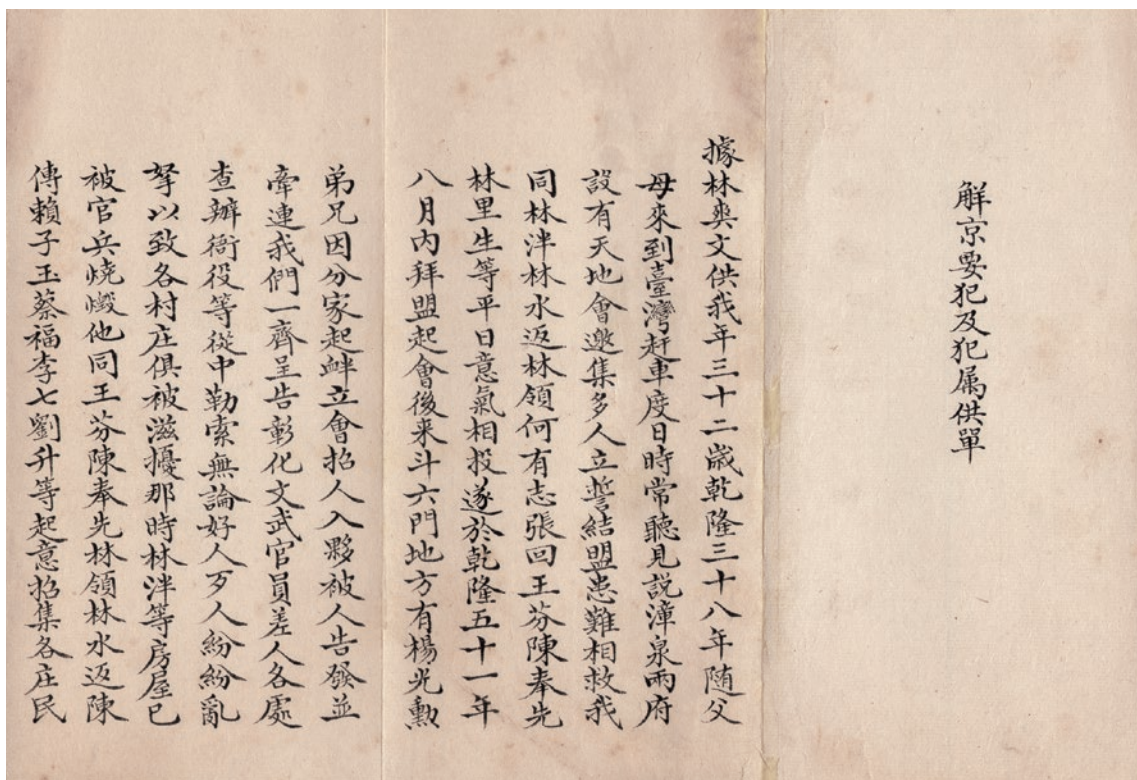 解京要犯及犯属供單
據林爽文供我年三十二歲乾隆三十八年随父
母來到臺灣赶車度日時常聽見説漳泉兩府
設有天地會邀集多人立誓結盟患難相救我
同林泮林水返林領何有志張回王芬陳奉先
林里生等平日意氣相投遂於乾隆五十一年
八月内拜盟起會後来斗六門地方有楊光勲
弟兄因分家起衅立會招人入夥被人告發並
牽連我們一齊呈告彰化文武官員差人各處
查辦衙役等從中勒索無論好人歹人紛紛亂
拏以致各村庄俱被滋擾那時林泮等房屋已
被官兵燒燬他同王芬陳奉先林領林水返陳
傳賴子玉蔡福李七劉升等起意招集各庄民